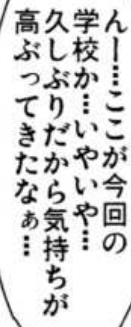 んー…ここが今回の
学校か…いやいや…
久しぶりだから気持ちが
高ぶってきたなぁ…